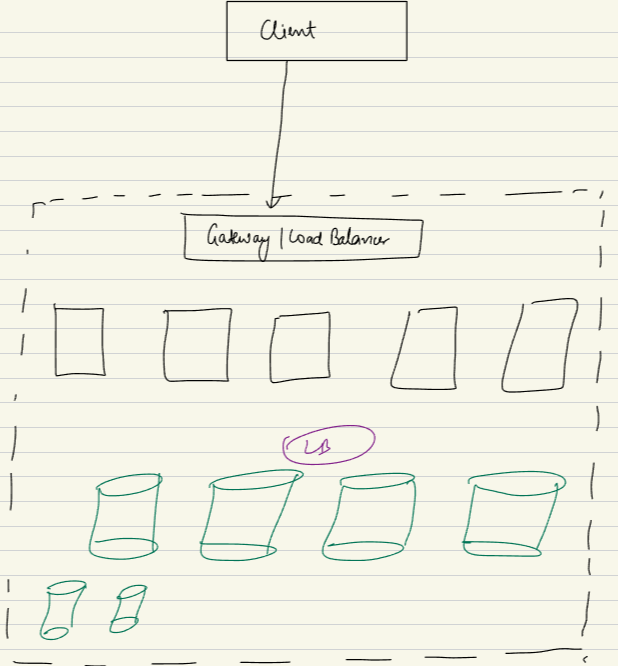 Client
Gateway | Load Balancer
LB